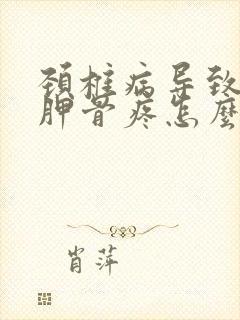 颈椎病导致
胛骨疼怎么
肖萍